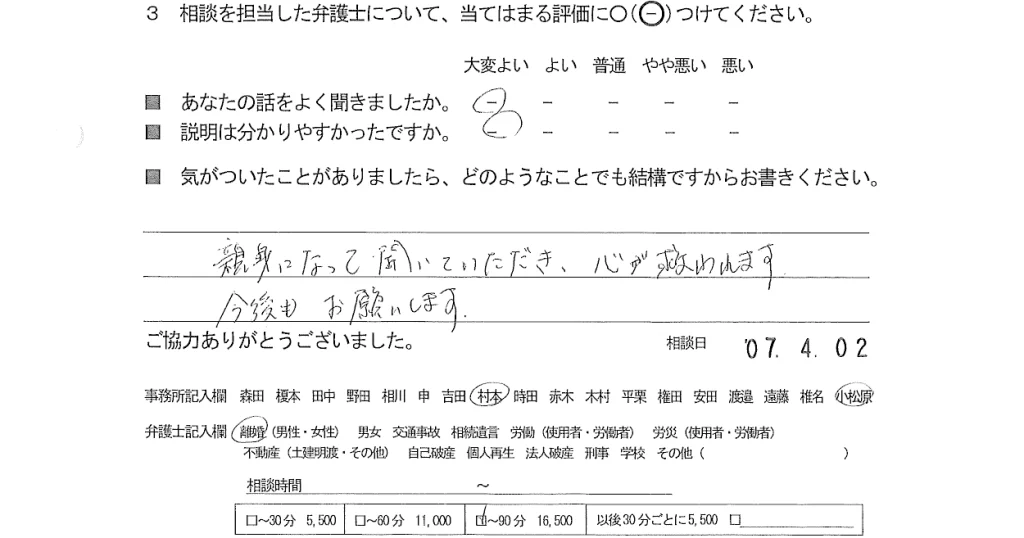 3 相談を担当した弁護士について、当てはまる評価に○(⊖)つけてください。
大変よい よい 普通 やや悪い 悪い
■ あなたの話をよく聞きましたか。 － － － － －
■ 説明は分かりやすかったですか。 － － － － －
■ 気がついたことがありましたら、どのようなことでも結構ですからお書きください。
親身になって聞いていただき、心が救われます
今後も お願いします.
ご協力ありがとうございました。 相談日 '07. 4. 02
事務所記入欄 森田 榎本 田中 野田 相川 申 吉田 村本 時田 赤木 木村 平栗 権田 安田 渡邉 遠藤 椎名 小松原
弁護士記入欄 離婚（男性・女性） 男女 交通事故 相続遺言 労働（使用者・労働者） 労災（使用者・労働者）
不動産（土建明渡・その他） 自己破産 個人再生 法人破産 刑事 学校 その他（ ）
相談時間 ～
□～30分 5,500 □～60分 11,000 ☑～90分 16,500 以後30分ごとに5,500 □